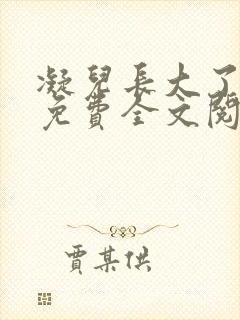 凝兒長大了
免費全文閱
賈某供